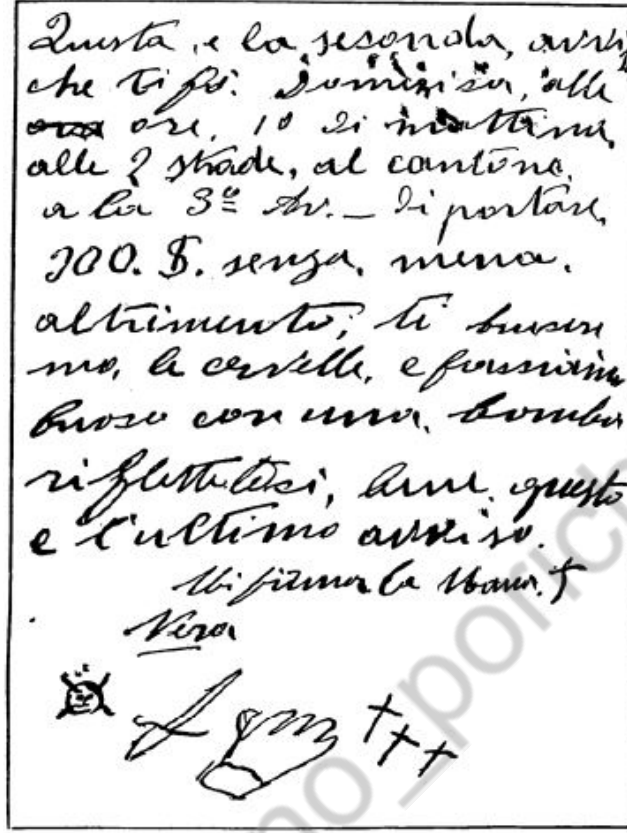 Questa, e la seconda, avvi
che ti fò. Domenica, alle
ore, 10 di mattina,
alle 2 strade, al cantone,
a la 3ª Av. — di portare,
300. $. senza, meno.
altrimento, ti bruse
mo, le cervelle, e fassiamo
buoso con una. bomba
riflettetesi, bene. questo
e l'ultimo avviso.
Mi firmo la Mano. †
Nera
no_porich